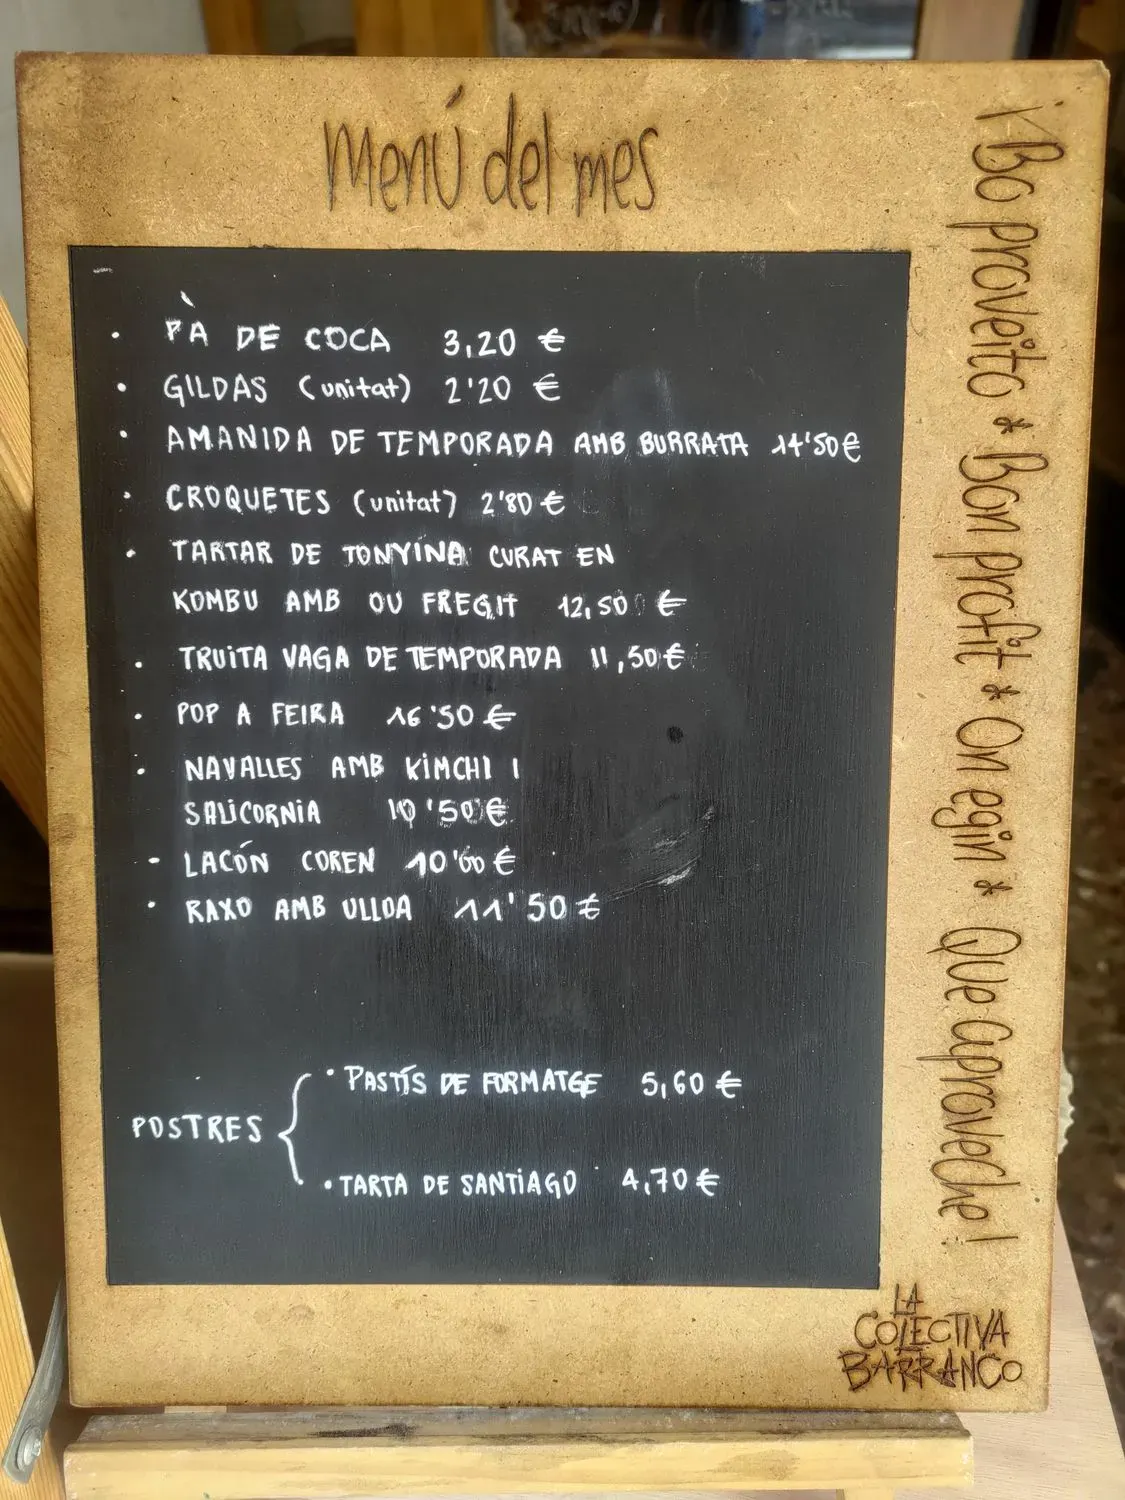 Menú del mes
• PÀ DE COCA 3,20 €
• GILDAS (unitat) 2'20 €
• AMANIDA DE TEMPORADA AMB BURRATA 14'50 €
• CROQUETES (unitat) 2'80 €
• TARTAR DE TONYINA CURAT EN
KOMBU AMB OU FREGIT 12,50 €
• TRUITA VAGA DE TEMPORADA 11,50 €
• POP A FEIRA 16'50 €
• NAVALLES AMB KIMCHI I
SALICORNIA 10'50 €
• LACÓN COREN 10'60 €
• RAXO AMB ULLOA 11'50 €
POSTRES
• PASTÍS DE FORMATGE 5,60 €
• TARTA DE SANTIAGO 4,70 €
¡Bo proveito * Bon profit * On egin * Que aproveche!
LA
COLECTIVA
BARRANCO